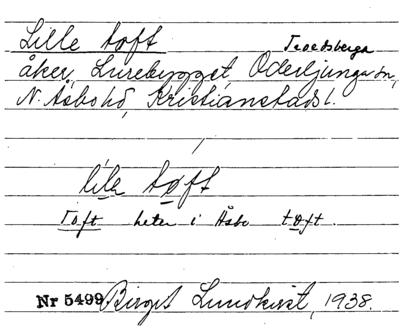 Lille toft
Troedsberga
åker, Lurebygget, Oderljunga sn,
N. Åsbo hd, Kristianstads l.
lile toft
Toft heter i Åsbo toft.
Nr 5499 Birgit Lundkvist, 1938.